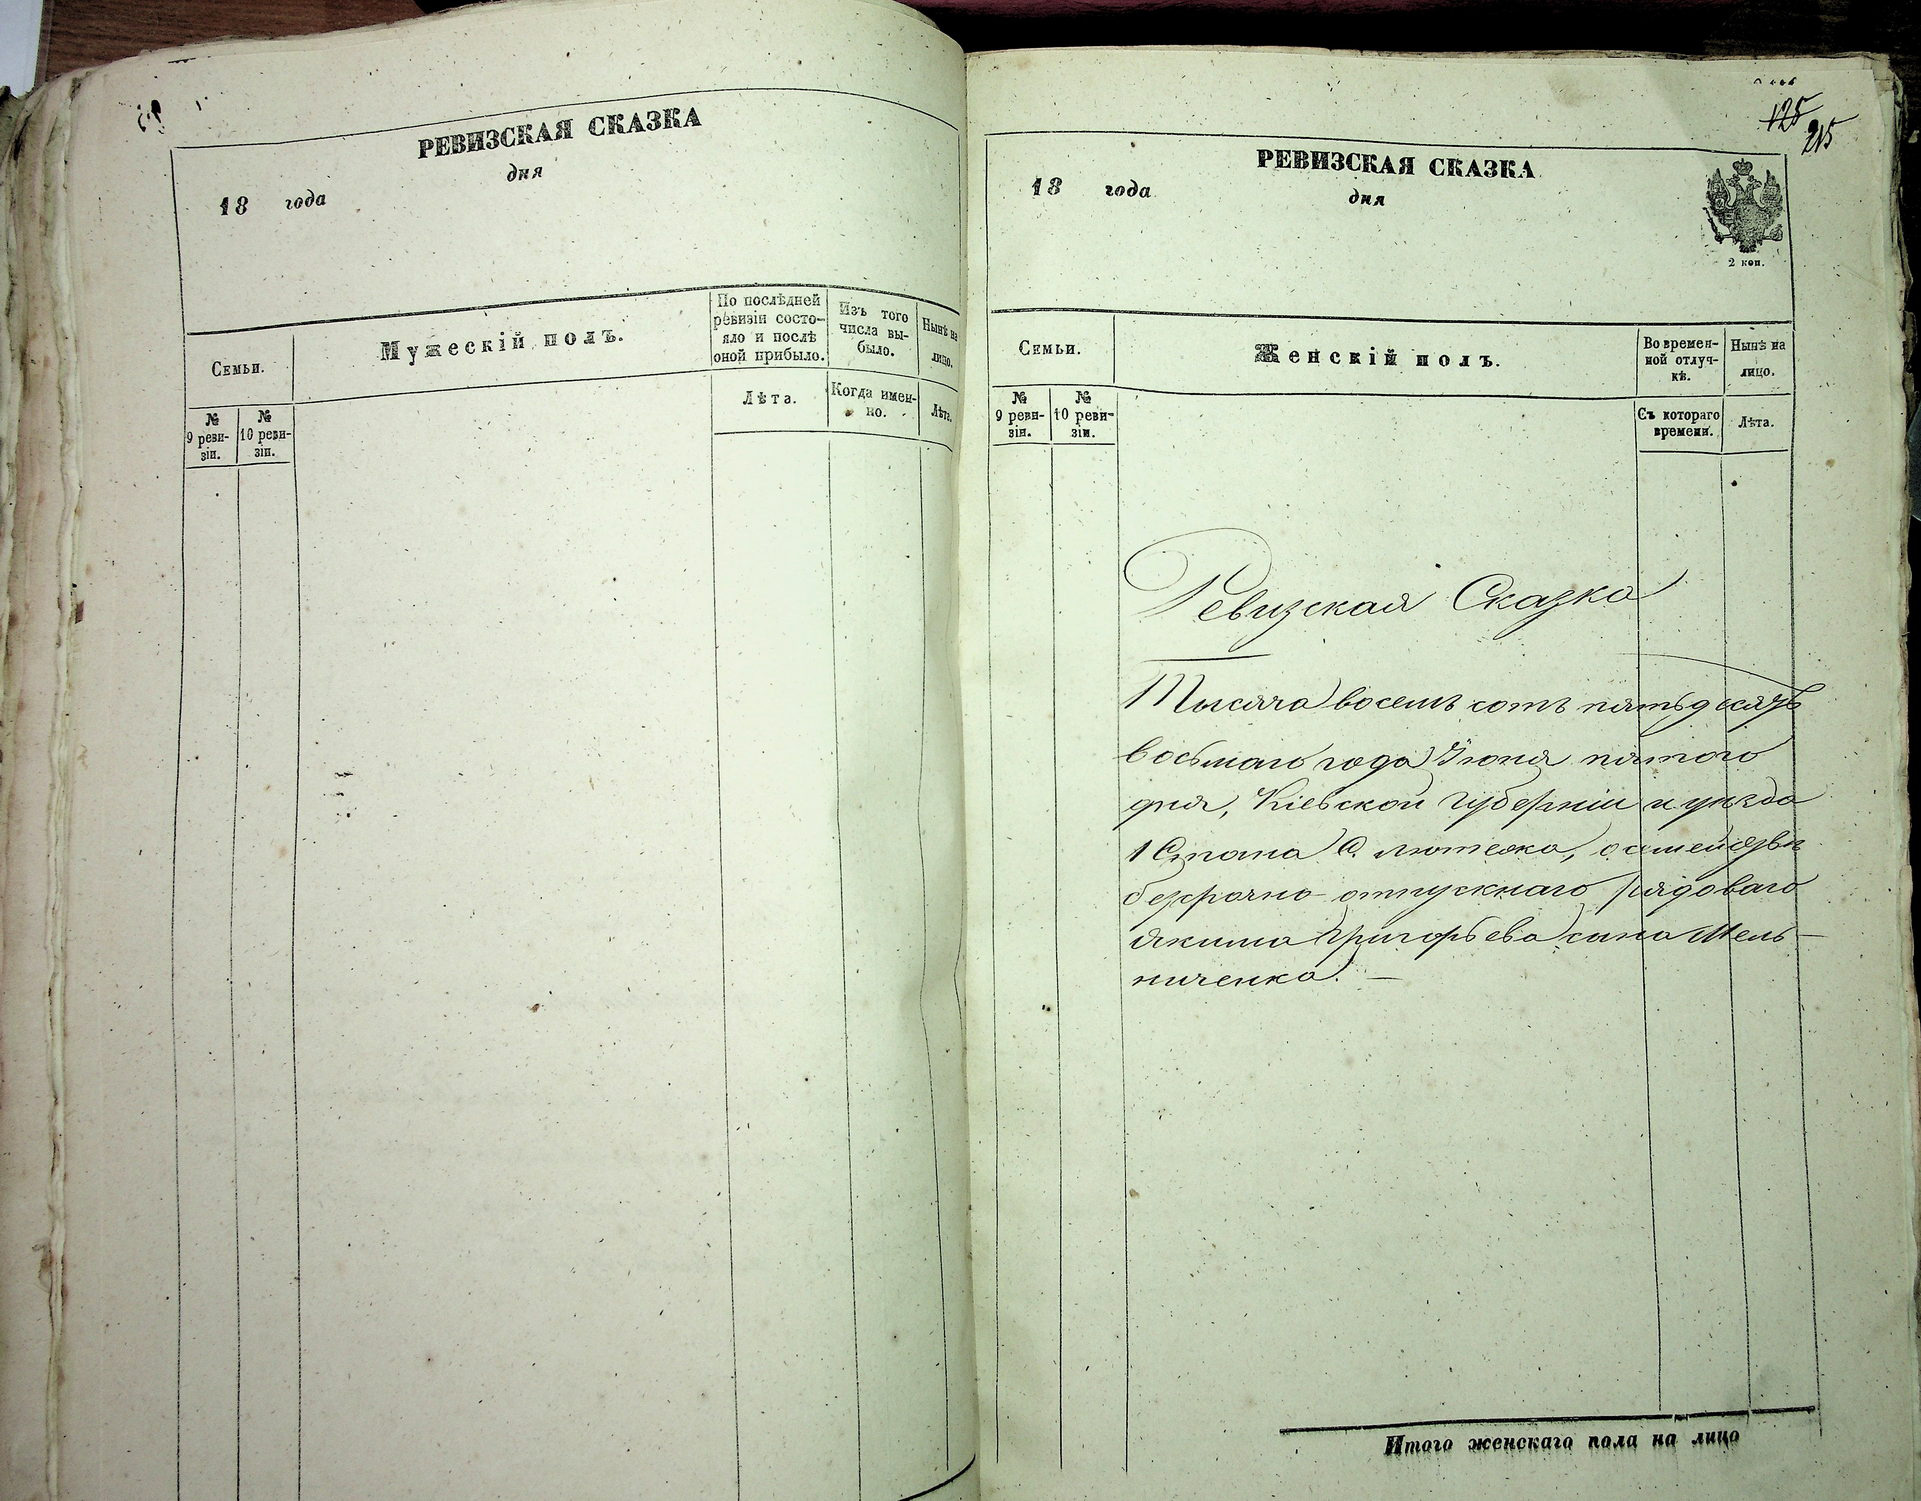 РЕВИЗСКАЯ СКАЗКА
дня
18 года
Семьи.
Мужескій полъ.
По послѣдней
ревизіи состо-
яло и послѣ
оной прибыло.
Изъ того
числа вы-
было.
Нынѣ на
лицо.
№
9 реви-
зіи.
№
10 реви-
зіи.
Лѣта.
Когда имен-
но.
Лѣта.
125
215
РЕВИЗСКАЯ СКАЗКА
дня
18 года
2 коп.
Семьи.
Женскій полъ.
Во времен-
ной отлуч-
кѣ.
Нынѣ на
лицо.
№
9 реви-
зіи.
№
10 реви-
зіи.
Съ котораго
времени.
Лѣта.
Ревизская Сказка
Тысяча восемъ сотъ пятьдесятъ
восьмаго года Іюня пятого
дня, Кіевской Губерніи и уѣзда
1 Стана С. Лютежа, о семействѣ
безсрочно отпускнаго рядоваго
Якима Григорьева сына Мель-
ниченка. —
Итого женскаго пола на лицо